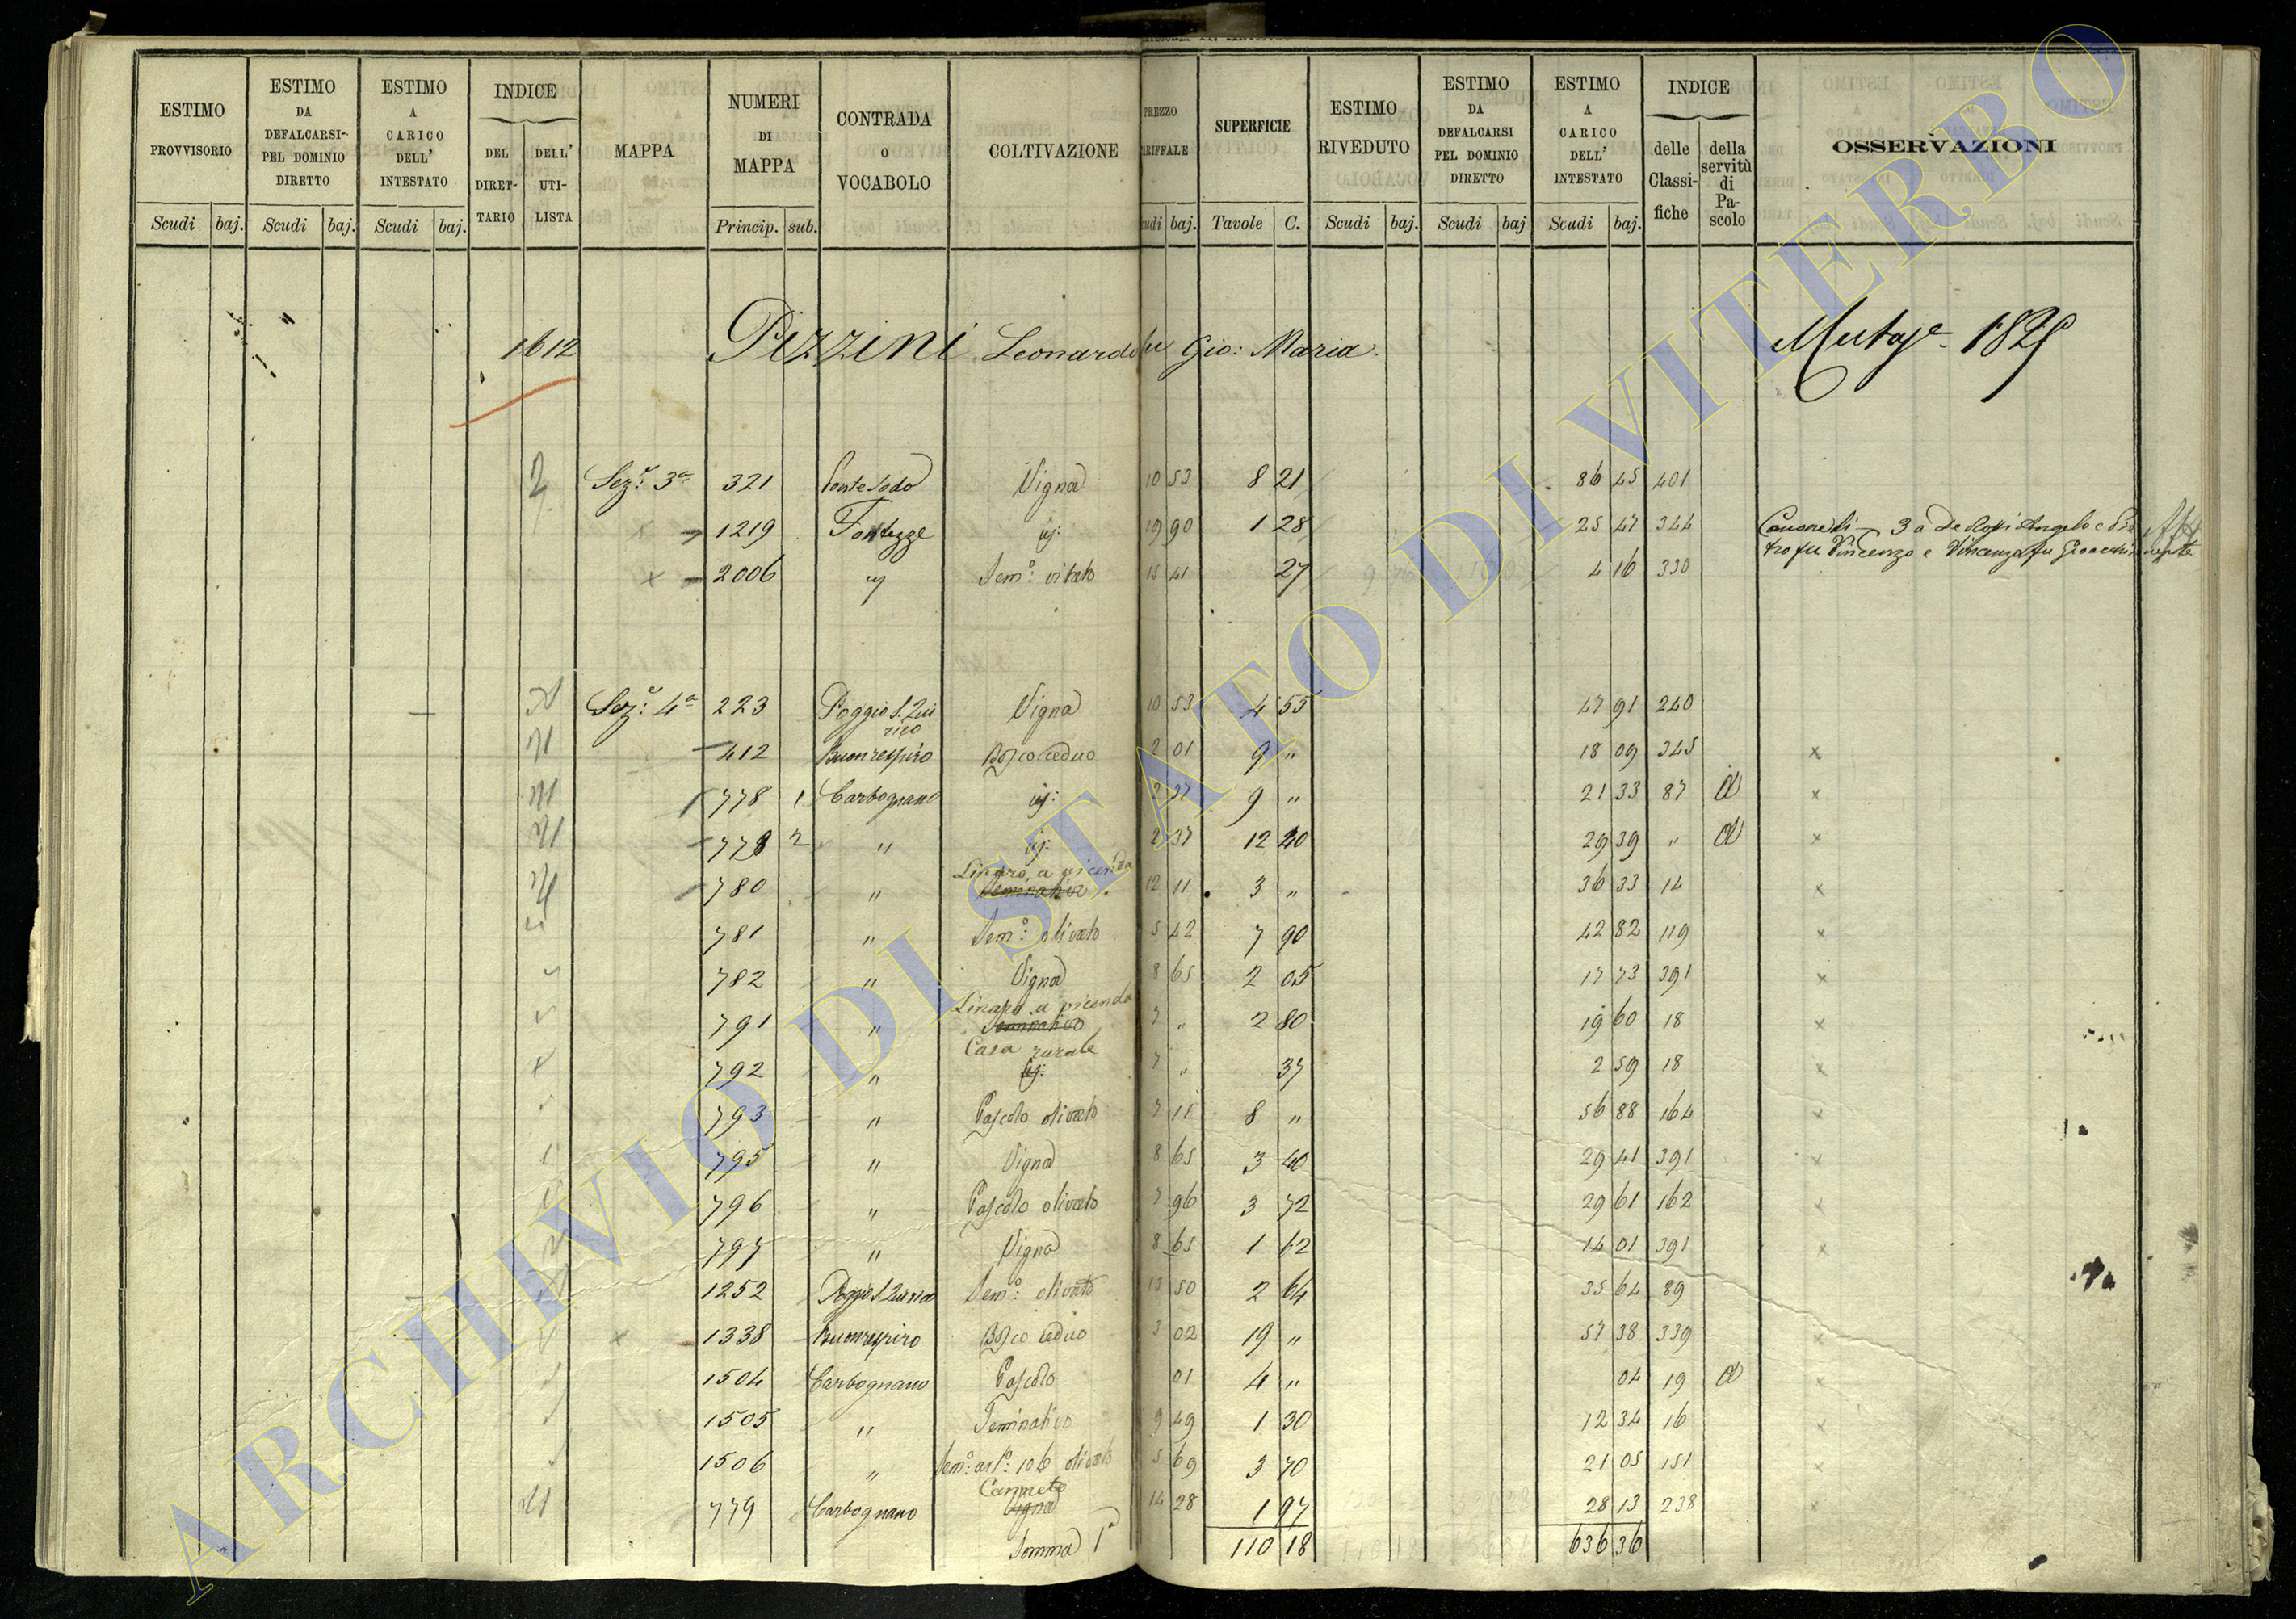 ESTIMO PROVVISORIO | ESTIMO DA DEFALCARSI PEL DOMINIO DIRETTO | ESTIMO A CARICO DELL' INTESTATO | INDICE DEL DIRETTARIO | DELL' UTILISTA | MAPPA | NUMERI DI MAPPA | CONTRADA O VOCABOLO | COLTIVAZIONE | PREZZO | SUPERFICIE | ESTIMO RIVEDUTO | ESTIMO DA DEFALCARSI PEL DOMINIO DIRETTO | ESTIMO A CARICO DELL' INTESTATO | INDICE delle Classifiche | della servitù di Pascolo | OSSERVAZIONI
Scudi | baj. | Scudi | baj. | Scudi | baj. | Princip. | sub. | baj. | Tavole | C. | Scudi | baj. | Scudi | baj | Scudi | baj.
1612 Pizzini Leonardo fu Gio: Maria. 1825
Sez.e 3a 321 Pontesodo Vigna 10 53 8 21 86 45 401
1219 Fontezze id: 19 90 1 28 25 47 344 3 a De Rossi Angelo e
2006 id Sem.o vitato 15 41 27 4 16 330 fu Vincenzo e Vincenza fu
Sez.e 4a 223 Poggio S. Qui rico Vigna 10 53 4 55 47 91 240
412 Buonrespiro Bosco ceduo 2 01 9 " 18 09 345 x
778 1 Carbognano id: 2 37 9 " 21 33 87 a x
778 2 " id: 2 37 12 40 29 39 " a x
780 " Linaro, a vicenda Seminativo 12 11 3 " 36 33 14 x
781 " Sem.o olivato 5 42 7 90 42 82 119 x
782 " Vigna 8 65 2 05 17 73 391 x
791 " Linaro a vicenda Seminativo 7 " 2 80 19 60 18 x
792 " Casa rurale id: 7 " 37 2 59 18 x
793 " Pascolo olivato 7 11 8 " 56 88 164 x
795 " Vigna 8 65 3 40 29 41 391 x
796 " Pascolo olivato 7 96 3 72 29 61 162 x
797 " Vigna 8 65 1 62 14 01 391 x
1252 Poggio S. Quirico Sem.o olivato 13 50 2 64 35 64 89
x 1338 Buonrespiro Bosco ceduo 3 02 19 " 57 38 339 x
1504 Carbognano Pascolo 01 4 " 04 19 a x
1505 " Seminativo 9 49 1 30 12 34 16 x
1506 " Sem.o 106 olivato 5 69 3 70 21 05 151 x
779 Carbognano Canneto Vigna 14 28 1 97 28 13 238 x
Somma 110 18 636 36
ARCHIVIO DI STATO DI VITERBO